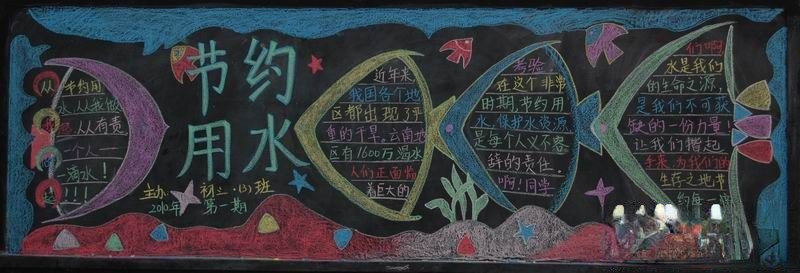 节约用
水,从我做
起,从有责
一个人一
一滴水!
起!!!
节约
用水
主办:初二.(3)班
2010年 第一期
近年来
我国各个地
区都出现了严
重的干旱。云南地
区有1600万渴水
人们正面临
着巨大的
考验
在这个非常
时期,节约用
水,保护水资源,
是每个人义不容
辞的责任。
啊!同学
们啊
水是我们
的生命之源,
是我们不可获
缺的一份力量!
让我们携起
手来,为我们的
生存之地节
约每一滴